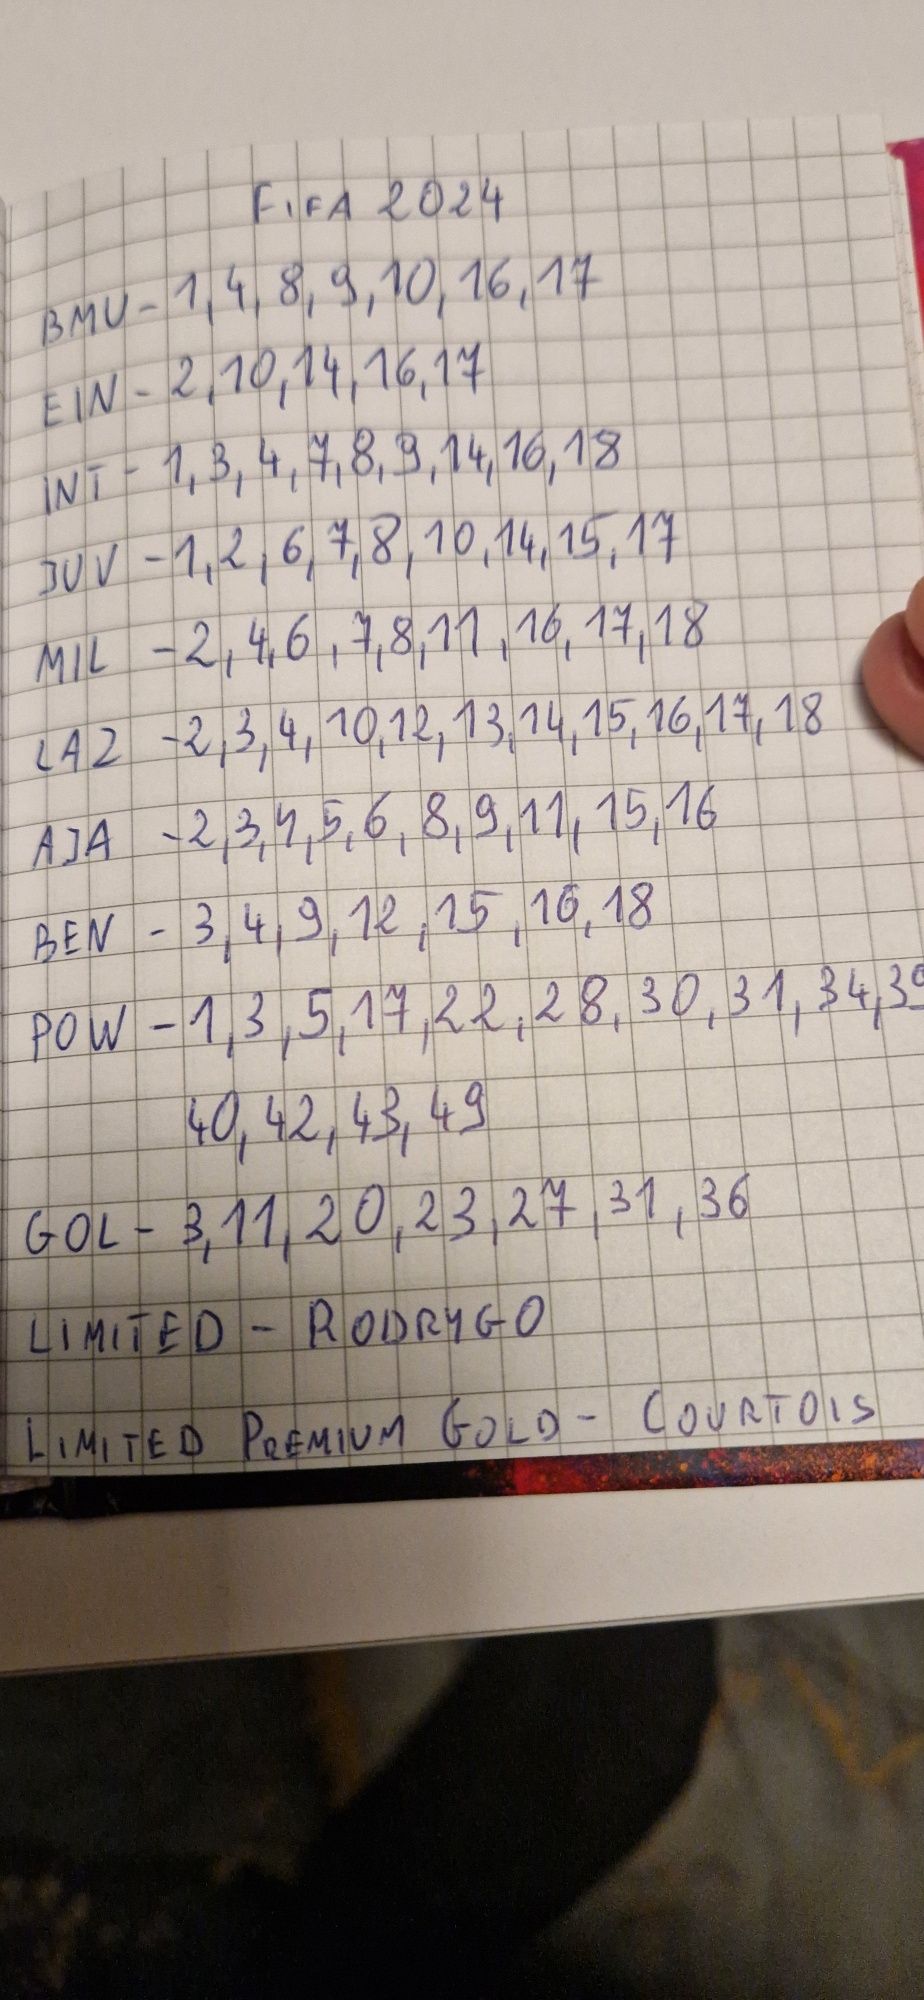 FIFA 2024
BMU - 1,4,8,9,10,16,17
EIN - 2,10,14,16,17
INT - 1,3,4,7,8,9,14,16,18
JUV - 1,2,6,7,8,10,14,15,17
MIL - 2,4,6,7,8,11,16,17,18
LAZ - 2,3,4,10,12,13,14,15,16,17,18
AJA - 2,3,4,5,6,8,9,11,15,16
BEN - 3,4,9,12,15,16,18
POW - 1,3,5,17,22,28,30,31,34,39
40,42,43,49
GOL - 3,11,20,23,27,31,36
LIMITED - RODRYGO
LIMITED PREMIUM GOLD - COURTOIS